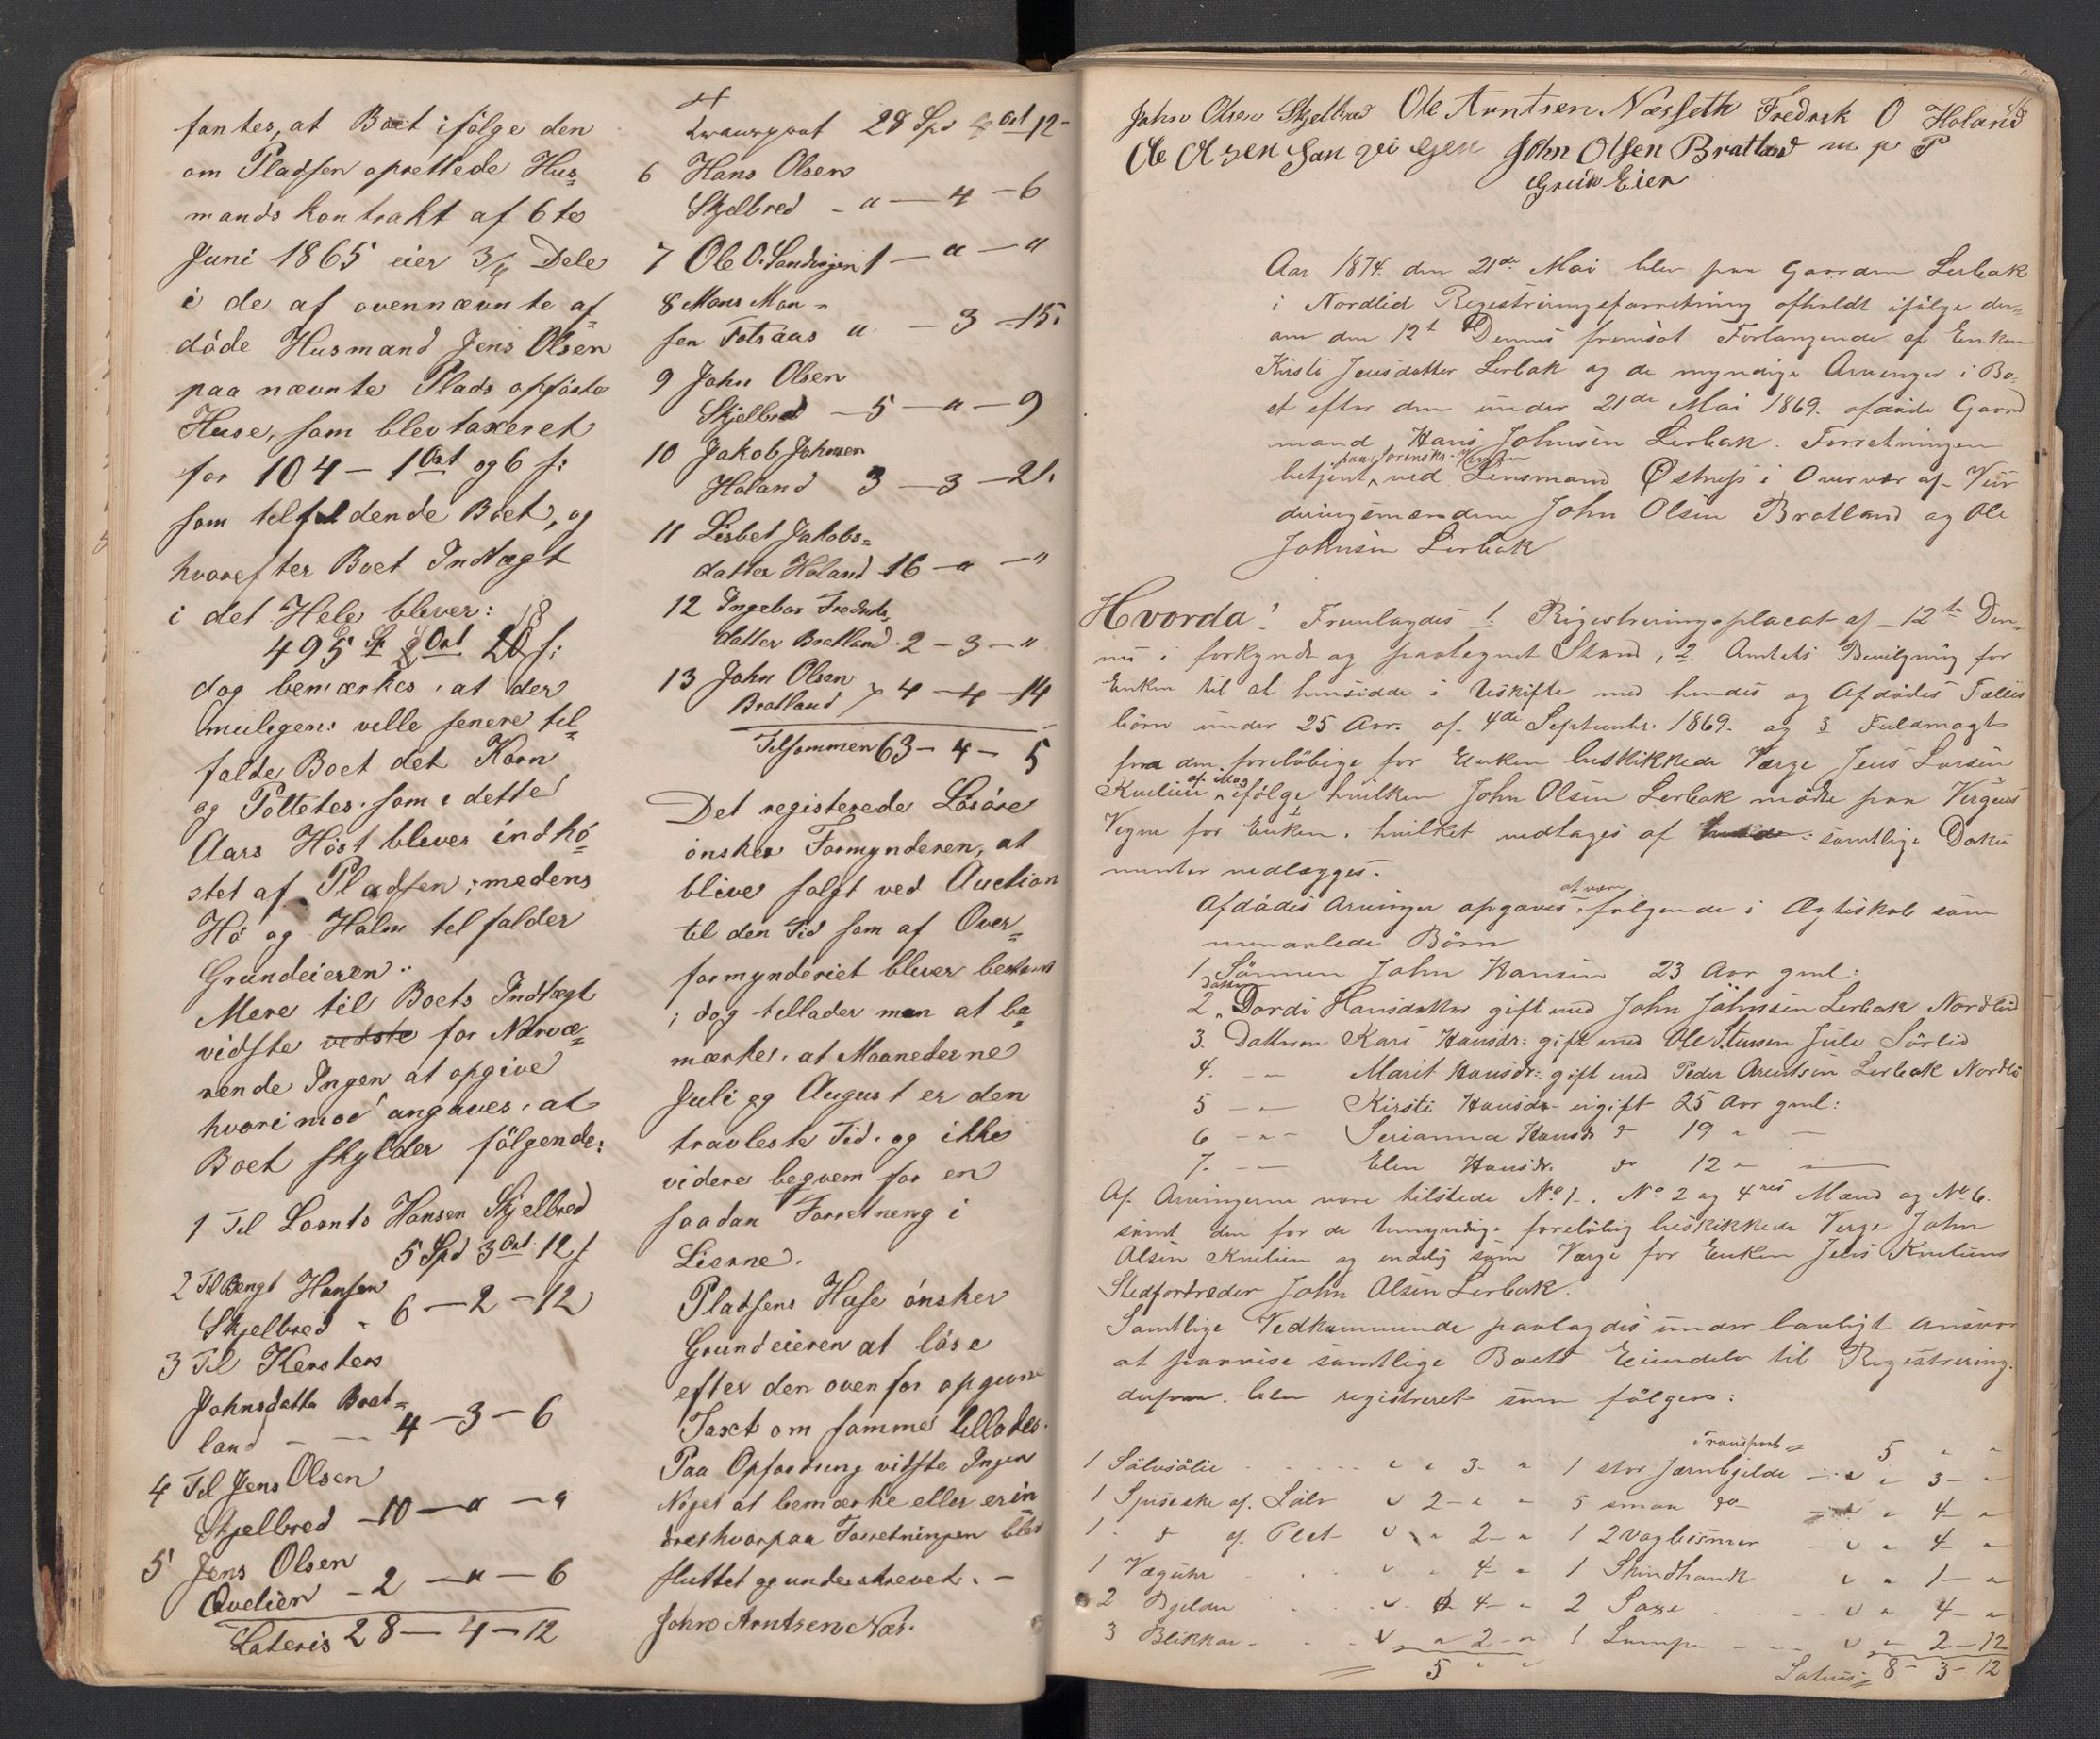 fantes, at Boet ifølge den
om Pladsen oprettede Hus=
mandskontrakt af 6te
Juni 1865 eier 3/4 Dele
i de af ovennævnte af=
døde Husmand Jens Olsen
paa nævnte Plads opføste
Huse, som blev taxeret
for 104 – 1 Ort og 6 s:
som tilfaldende Boet, og
hvorefter Boet Indtægt
i det Hele bliver:
495 Sp Ort s:
dog bemærkes, at der
muligens ville senere til=
falde Boet det Korn
og Pottetes som i dette
Aars Høst bliver indhø=
stet af Pladsen; medens
Hø og Halm tilfalder
Grundeieren..
Mere til Boets Indtægt
vidste vidste for Nærvæ=
rende Ingen at opgive
hvorimod angaves, at
Boet skylder følgende:
1 Til Lornts Hansen Skjelbred
5 Spd 3 Ort 12 s
2 Til Bengt Hansen
Skjelbred " 6 – 2 – 12
3 Til Kersters
Johnsdatte Brat=
land – – 4 – 3 – 6
4 Til Jens Olsen
Skjelbred – 10 – " – "
5 Jens Olsen
Qvelien – 2 – " – 6
Lateris 28 – 4 – 12
Transport 28 Spd 4 Ort 12 –
6 Hans Olsen
Skjelbred – " – 4 – 6
7 Ole O. Sandvigen 1 – " – "
8 Mons Mon =
sen Totsaas " – 3 – 15.
9 John Olsen
Skjelbred – 5 – " – 9
10 Jakob Johnsen
Holand 3 – 3 – 21.
11 Lisbet Jakobs=
datter Holand 16 – " – "
12 Ingebor Fredriks
datter Bratland. 2 – 3 – "
13 John Olsen
Bratland 7 4 – 4 – 14
Tilsammen 63 – 4 – 5
Det registerede Løsøre
ønsker Formynderen, at
blive solgt ved Auction
til den Tid som af Over=
formynderiet bliver bestemt
; dog tillader man at be=
mærke, at Maanederne
Juli og August er den
travleste Tid, og ikke
videre beqvem for en
saadan Forretning i
Lierne.
Pladsens Huse ønsker
Grundeieren at løse
efter den ovenfor opgivne
Taxt om samme tillades.
Paa Opfordring vidste Ingen
Noget at bemærke eller erin
dres hvorpaa Forretningen blev
sluttet og underskrevet. –
John Arntsen Næs.
John Olsen Skjelbred Ole Arntsen Næsseth Fredrek O Holand
Ole Olsen Sanqvigen John Olsen Bratland m p P
Grund Eier
Aar 1874 den 21de Mai blev paa Gaarden Lerbak
i Nordlid Registreringsforretning afholdt ifølge der=
om den 12te Dennes fremsat Forlangende af Enken
Kirsti Jensdatter Lerbak og de myndige Arvinger i Bo=
et efter den under 21de Mai 1869 afdøde Gaard
mand, Hans Johnsen Lerbak. Forretningen
paa Sorenskr. Vegne
betjent ved Lensmand Østrup i Overvær af Vur
deringsmændene John Olsen Bratland og Ole
Johnsen Lerbak
Hvorda! Fremlagdes 1. Registreringsplacat af 12te Den=
nes i forkyndt og paategnet Stand, 2. Amtets Bevilgning for
Enken til at hensidde i Uskifte med hendes og Afdødes Fælles
børn under 25 Aar. af 4de Septembr. 1869. og 3 Fuldmagt
fra den foreløbige for Enken beskikkede Værge Jens Larsen
af idag
Kvelien, ifølge hvilken John Olsen Lerbak møder paa Vergens
Vegne for Enken. hvilket vedtages af samtlige Doku
menter vedlægges.
at være
Afdødes Arvinger opgaves følgende i Ægteskab sam
menavlede Børn
1 Sønnen John Hansen 23 Aar gml:
Datter
2. Dordi Hansdatter gift med John Johnsen Lerbak Nordlid
3. Datteren Kari Hansdr: gift med Ole Stensen Jule Sørlid
4. – – Marit Hansdr: gift med Peder Arentsen Lerbak Nordli
5 – " – Kirsti Hansdr – ugift 25 Aar gml:
6 – " – Serianna Hansdr do 19 " –
7. – – Elen Hansdr. do 12 " –
Af Arvingerne vare tilstede No 1. No 2 og 4res Mænd og No 6.
samt den for de Umyndige foreløbig beskikkede Verge John
Olsen Kvelien og endelig som Værge for Enken Jens Kveliens
Stedfortræder John Olsen Lerbak.
Samtlige Vedkommende paalagdes under lovligt Ansvar
at paavise samtlige Boets Eiendele til Registrering.
derpaa blev registreret som følger:
1 Sølvsølie . . . . " " 3 – "
1 Spiseske af Sølv " 2 – " "
1 do af Plet " " 2 – "
1 Væguhr . . " " 4 – "
2 Bjelder . . " 4 – "
3 Blikkar – . " " 2 – "
5 " "
Transport = 5 " "
1 stor Jærnbjelde – " " 3 – "
5 smaa do – " " 4 – "
1 2 Vogbismer – " " 4 – "
1 Skindhank " " 1 – "
2 Saxe . . . " " 4 – "
1 Lampe – – – " " 2 – 12
Latus = 8 – 3 – 12